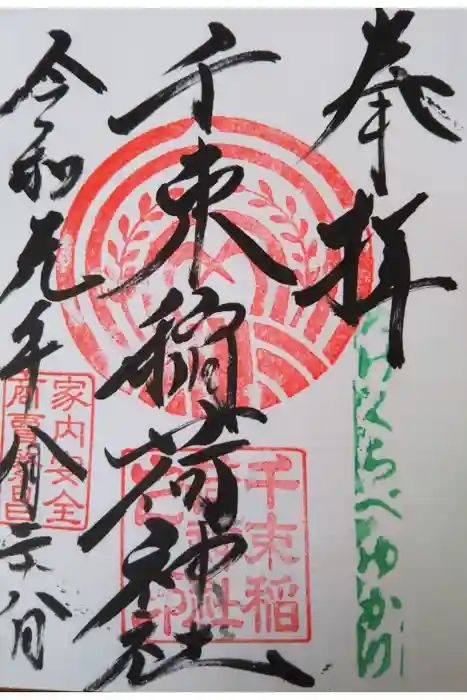 奉拝
たけくらべゆかり
千束稲荷神社
千束稲
荷神社
之印
令和元年八月六日
家内安全
商賣繁昌